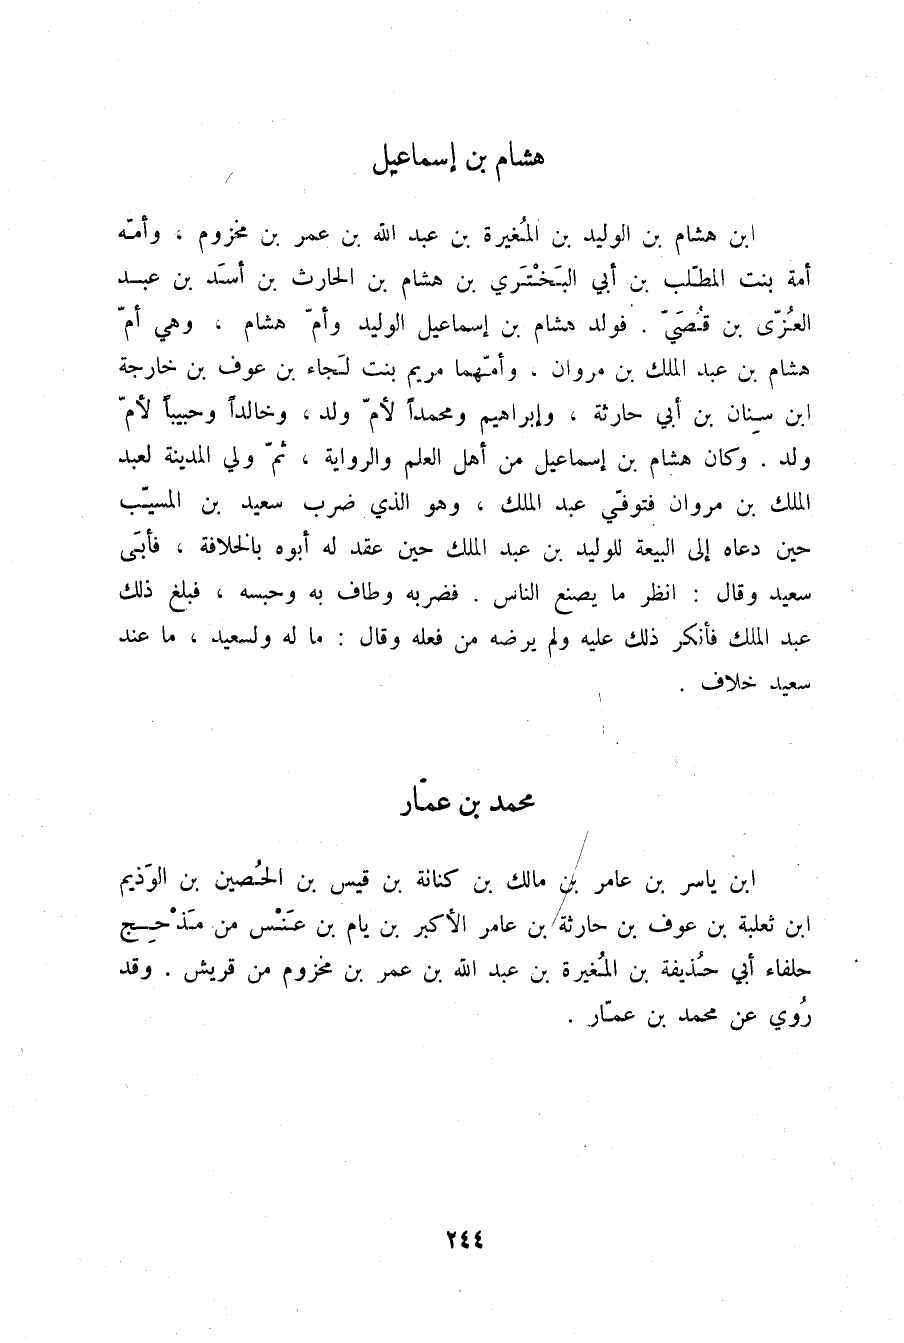 هشام بن إسماعيل
ابن هشام بن الوليد بن المُغيرة بن عبد الله بن عمر بن مخزوم ، وأمّه
أمة بنت المطّلب بن أبي البَخْتَري بن هشام بن الحارث بن أسَد بن عبد
العُزّى بن قُصَيّ . فولد هشام بن إسماعيل الوليد وأمّ هشام ، وهي أمّ
هشام بن عبد الملك بن مروان . وأمّهما مريم بنت لَجاء بن عوف بن خارجة
ابن سِنان بن أبي حارثة ، وإبراهيم ومحمداً لأمّ ولد ، وخالداً وحبيباً لأمّ
ولد . وكان هشام بن إسماعيل من أهل العلم والرواية ، ثمّ ولي المدينة لعبد
الملك بن مروان فتوفّي عبد الملك ، وهو الذي ضرب سعيد بن المسيّب
حين دعاه إلى البيعة للوليد بن عبد الملك حين عقد له أبوه بالخلافة ، فأبَى
سعيد وقال : انظر ما يصنع الناس . فضربه وطاف به وحبسه ، فبلغ ذلك
عبد الملك فأنكر ذلك عليه ولم يرضه من فعله وقال : ما له ولسعيد ، ما عند
سعيد خلاف .
محمد بن عمّار
ابن ياسر بن عامر بن مالك بن كنانة بن قيس بن الحُصين بن الوَذيم
ابن ثعلبة بن عوف بن حارثة بن عامر الأكبر بن يام بن عَنْس من مَذْحِج
حلفاء أبي حُذيفة بن المُغيرة بن عبد الله بن عمر بن مخزوم من قريش . وقد
رُوي عن محمد بن عمّار .
٢٤٤